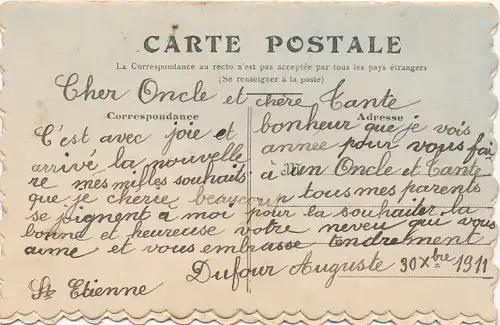 CARTE POSTALE
La Correspondance au recto n'est pas acceptée par tous les pays étrangers
(Se renseigner à la poste)
Cher Oncle et chère Tante
Correspondance
Adresse
C'est avec joie et bonheur que je vois
arrivé la nouvelle année pour vous fai
re mes milles souhaits à Mon Oncle et Tante
que je cherie beaucoup tous mes parents
se joignent à moi pour la souhaiter la
bonne et heureuse votre neveu qui vous
aime et vous embrasse tendrement.
Dufour Auguste 30 Xbre 1911
St Etienne